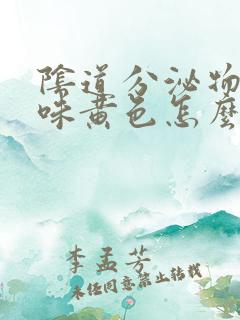 陰道分泌物
味黃色怎麼
李孟芳
未经同意禁止转载